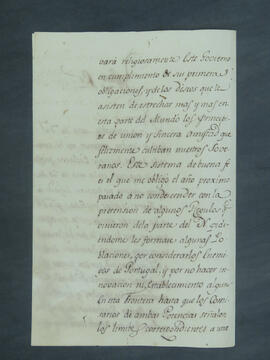 vará religiosamente Este Govierno
en cumplimiento de sus primeras
obligaciones, y de los deseos que le
asisten de estrechar mas y mas en
esta parte del Mundo los principios
de union y sincera amistad que
felizmente cultiban nuestros Sobe-
ranos. Este sistema de buena fe
es el que me obligó el año proximo
pasado a no condescender con la
pretension de algunos Regulos q.e
vinieron de la parte del N. pi-
diendome les formase algunas Po-
blaciones, por considerarlos Enemi-
gos de Portugal, y por no hacer in-
novacion ni Establecimiento alguno
en esta Frontera hasta que los Comi-
sarios de ambas Potencias señalen
los limites correspondientes a una